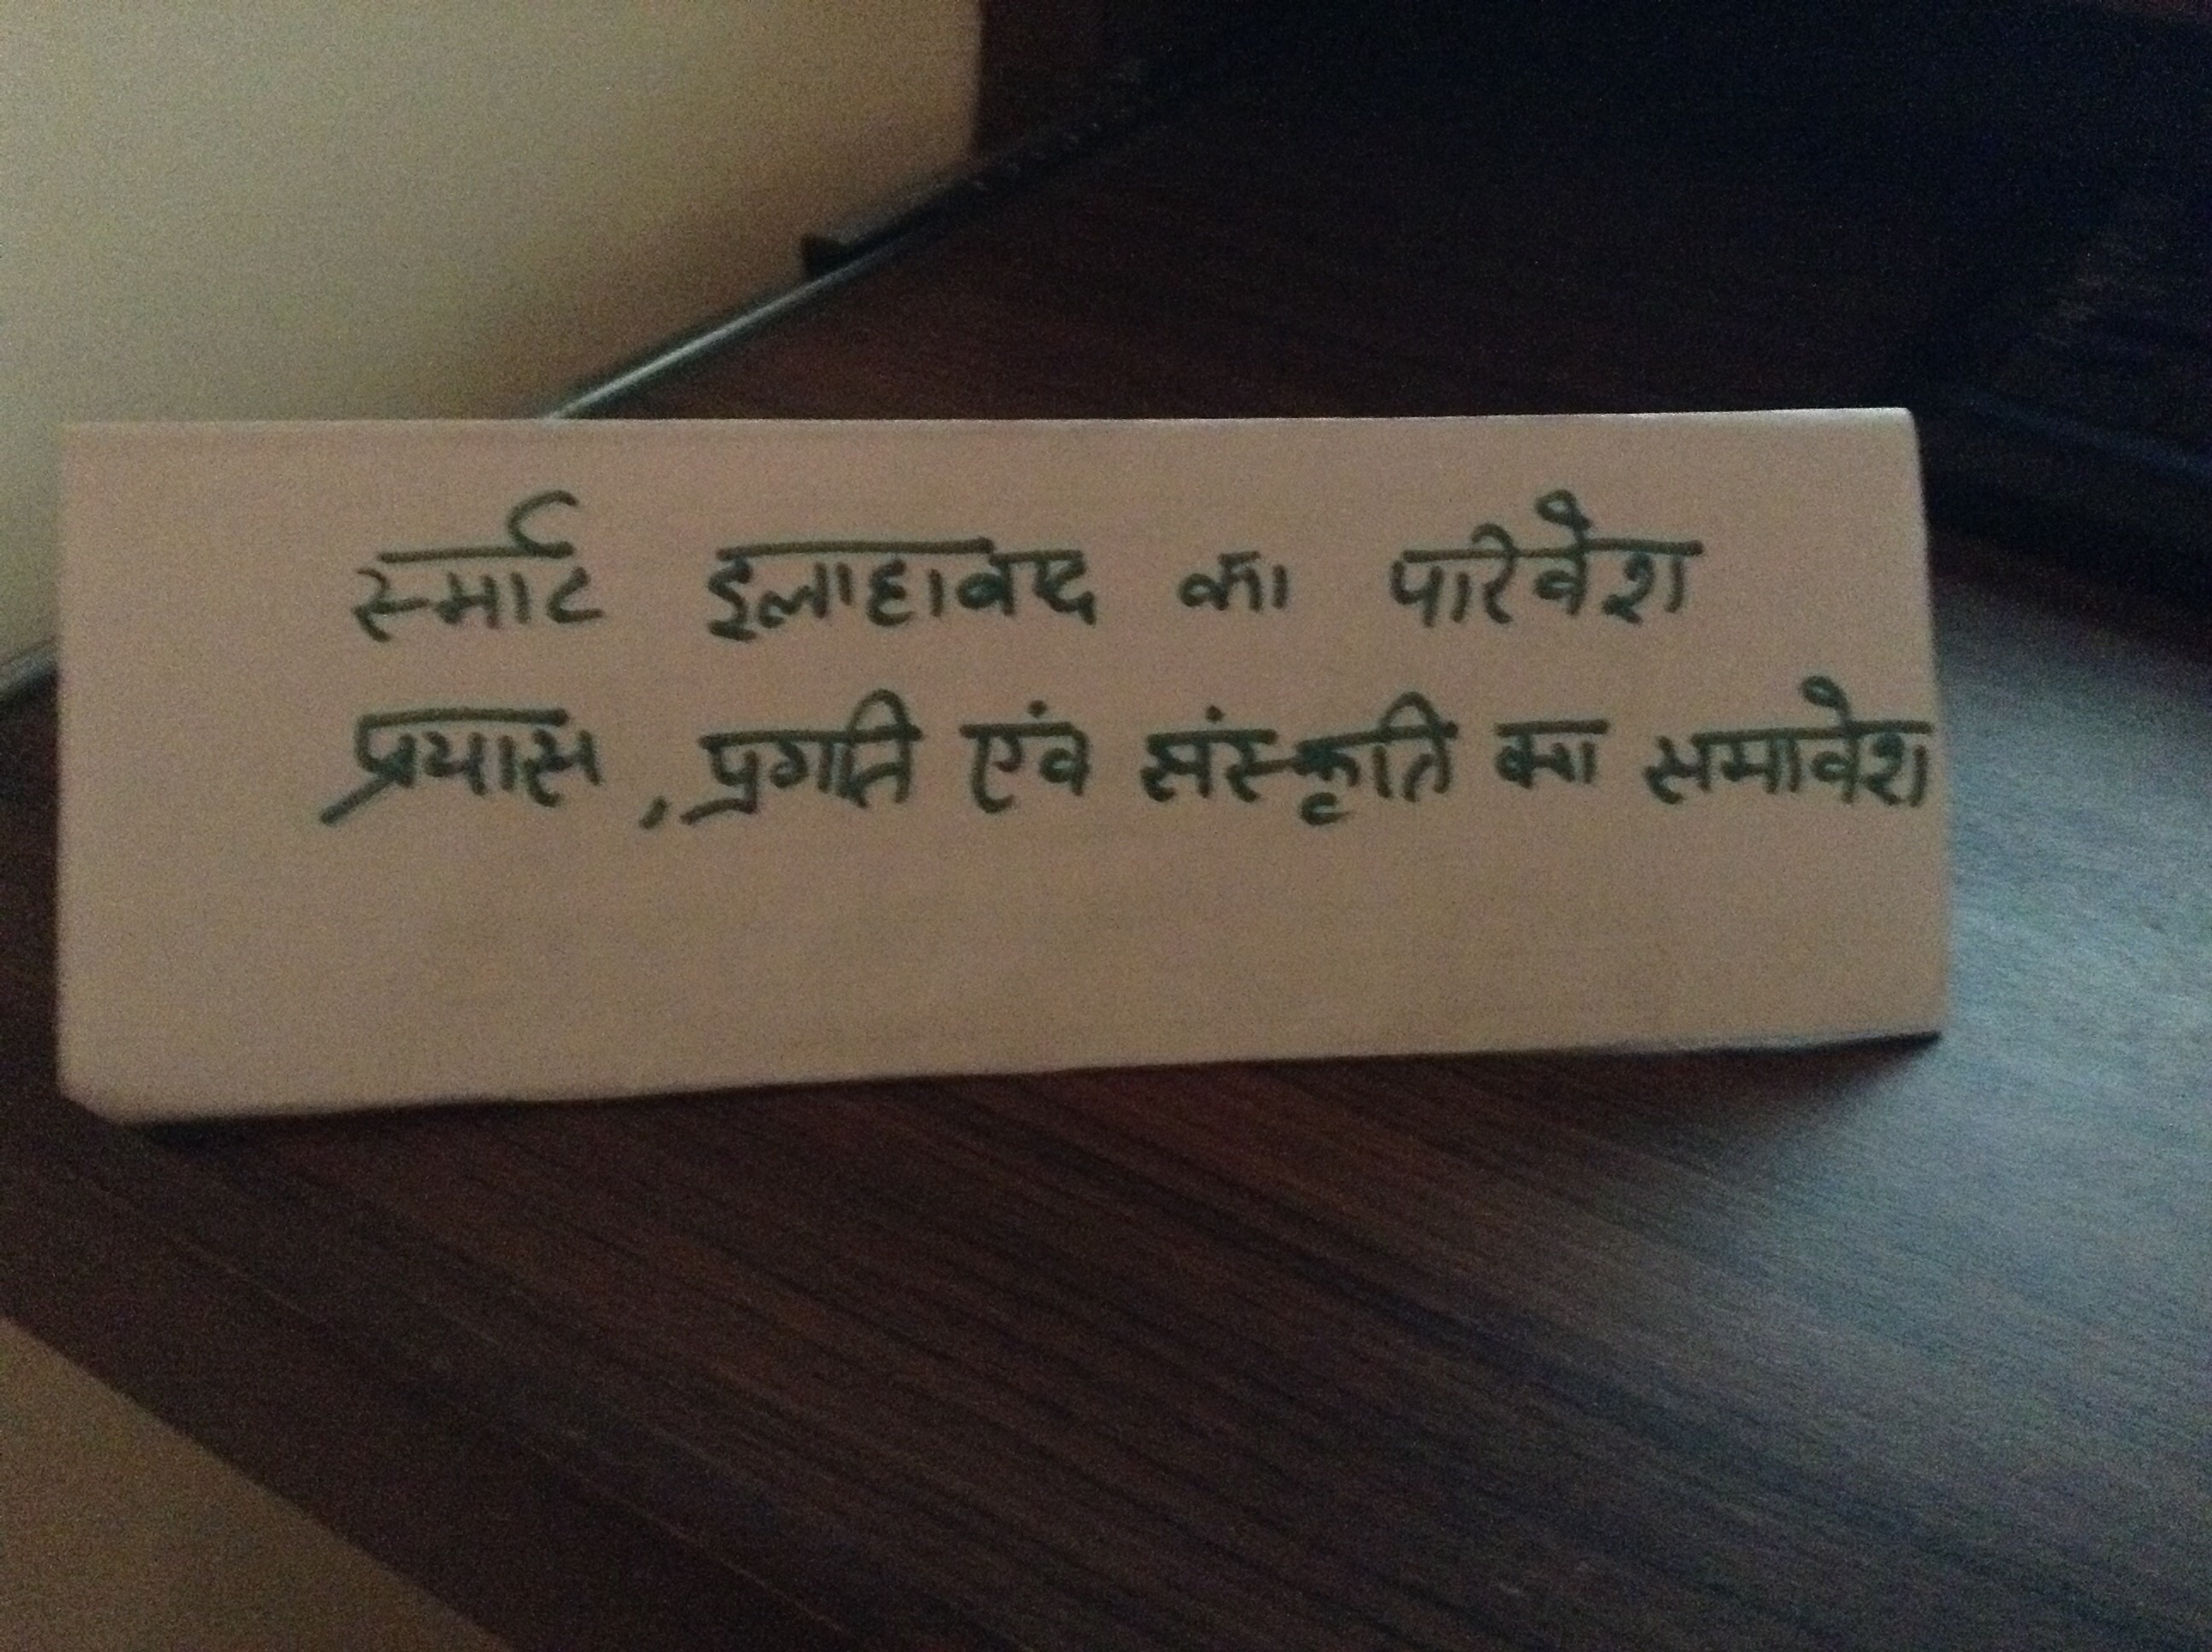 स्मार्ट इलाहाबाद का परिवेश
प्रयास, प्रगति एंव संस्कृति का समावेश